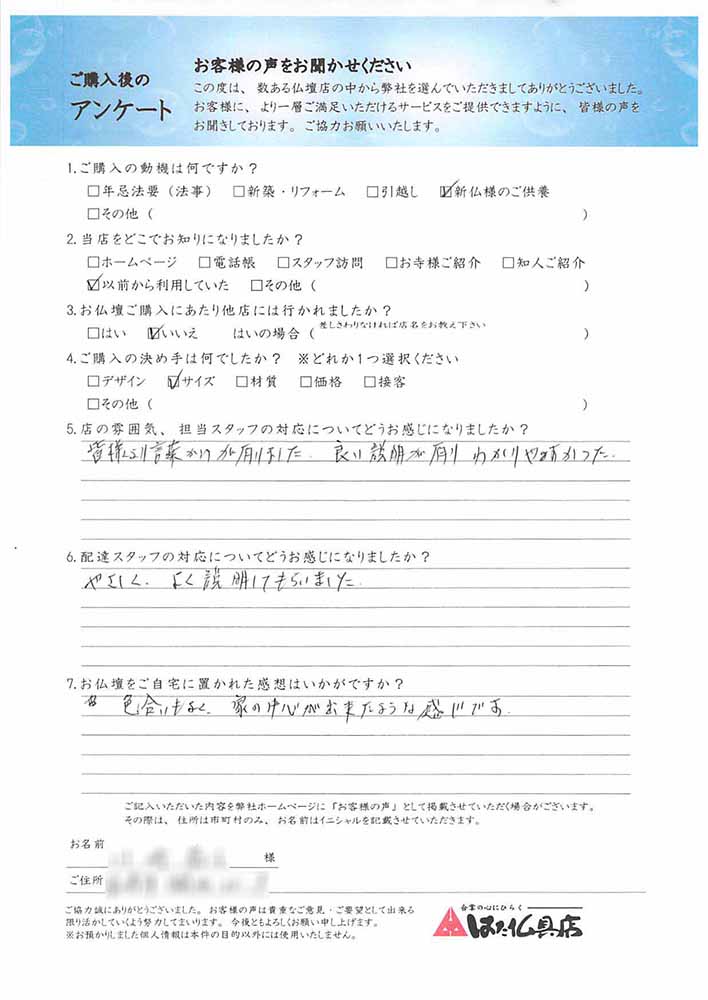 お客様の声をお聞かせください
ご購入後の
アンケート
この度は、数ある仏壇店の中から弊社を選んでいただきましてありがとうございました。
お客様に、より一層ご満足いただけるサービスをご提供できますように、皆様の声を
お聞きしております。ご協力お願いいたします。
1.ご購入の動機は何ですか？
□年忌法要（法事） □新築・リフォーム □引越し ☑新仏様のご供養
□その他（ ）
2.当店をどこでお知りになりましたか？
□ホームページ □電話帳 □スタッフ訪問 □お寺様ご紹介 □知人ご紹介
☑以前から利用していた □その他（ ）
3.お仏壇ご購入にあたり他店には行かれましたか？
□はい ☑いいえ はいの場合（差しさわりなければ店名をお教え下さい ）
4.ご購入の決め手は何でしたか？ ※どれか1つ選択ください
□デザイン ☑サイズ □材質 □価格 □接客
□その他（ ）
5.店の雰囲気、担当スタッフの対応についてどうお感じになりましたか？
皆様より言葉かけが有りました。良い説明が有りわかりやすかった。
6.配達スタッフの対応についてどうお感じになりましたか？
やさしく、よく説明してもらいました。
7.お仏壇をご自宅に置かれた感想はいかがですか？
色合いもよく、家の中心が出来たような感じです。
ご記入いただいた内容を弊社ホームページに「お客様の声」として掲載させていただく場合がございます。
その際は、住所は市町村のみ、お名前はイニシャルを記載させていただきます。
お名前 様
ご住所
ご協力誠にありがとうございました。お客様の声は貴重なご意見・ご要望として出来る
限り活かしていくよう努力してまいります。今後ともよろしくお願い申し上げます。
※お預かりしました個人情報は本件の目的以外には使用いたしません。
合掌の心にひらく
はた仏具店